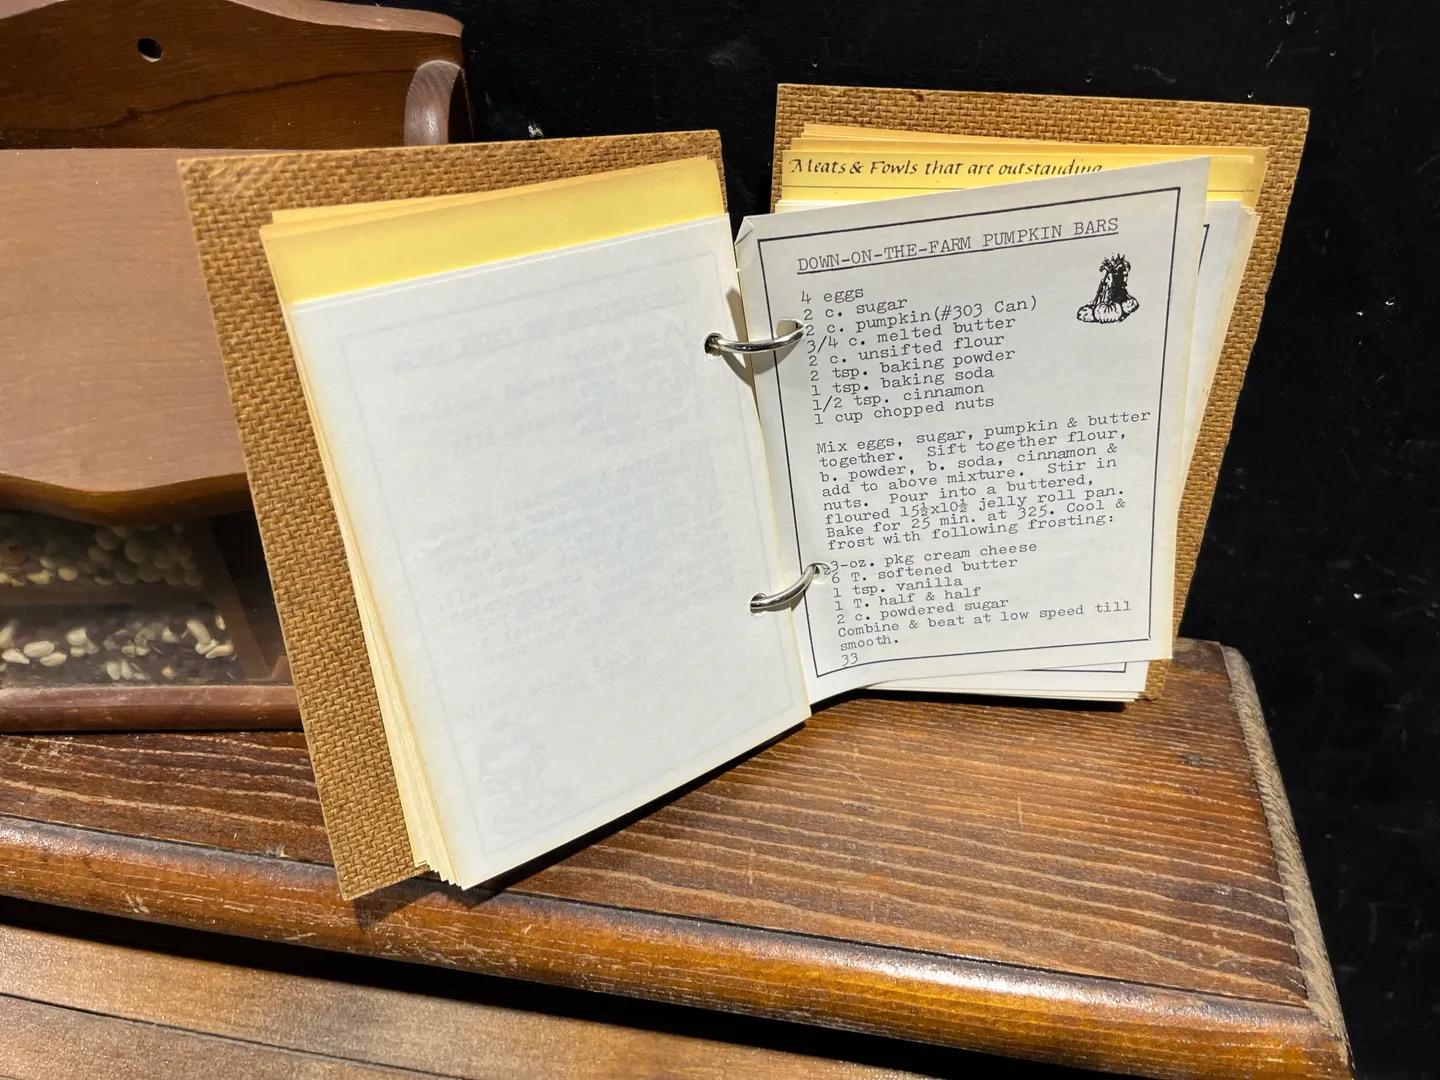 Meats & Fowls that are outstanding
DOWN-ON-THE-FARM PUMPKIN BARS
4 eggs
2 c. sugar
2 c. pumpkin(#303 Can)
3/4 c. melted butter
2 c. unsifted flour
2 tsp. baking powder
1 tsp. baking soda
1/2 tsp. cinnamon
1 cup chopped nuts
Mix eggs, sugar, pumpkin & butter
together. Sift together flour,
b. powder, b. soda, cinnamon &
add to above mixture. Stir in
nuts. Pour into a buttered,
floured 15½x10½ jelly roll pan.
Bake for 25 min. at 325. Cool &
frost with following frosting:
3-oz. pkg cream cheese
6 T. softened butter
1 tsp. vanilla
1 T. half & half
2 c. powdered sugar
Combine & beat at low speed till
smooth.
33